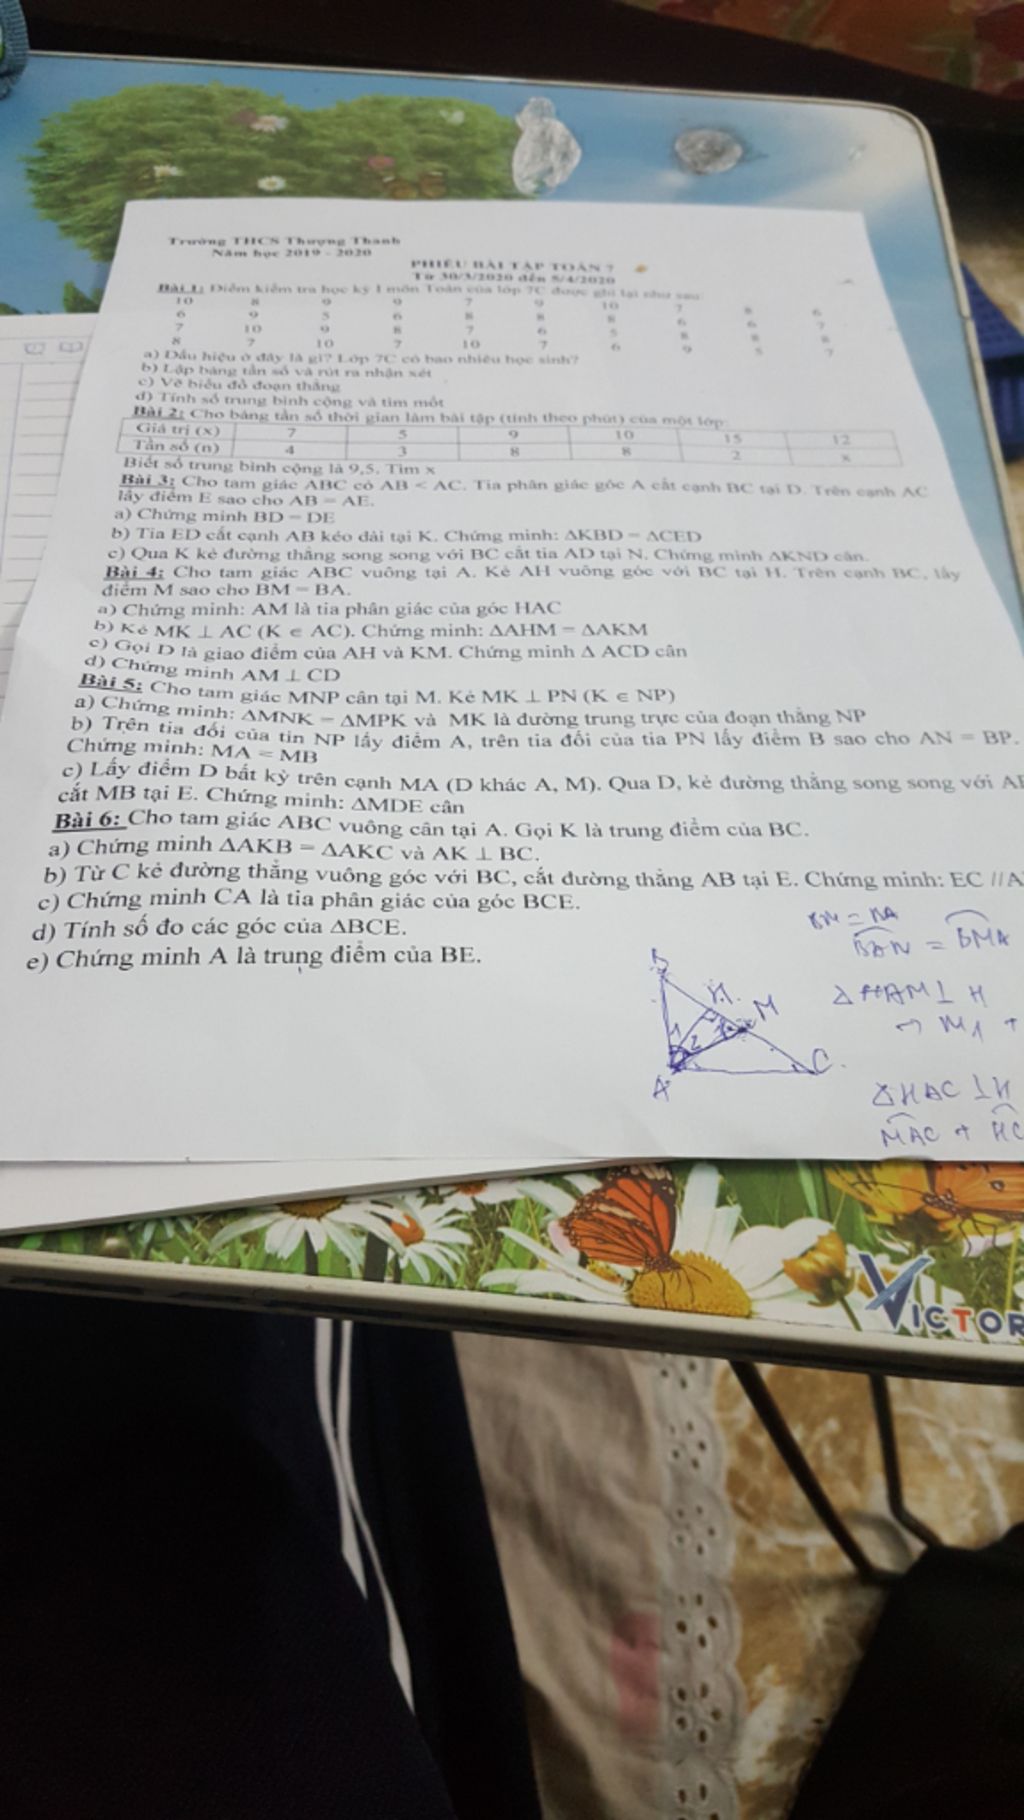 Trường THCS Thượng Thanh
Năm học 2019 - 2020
PHIẾU BÀI TẬP TOÁN 7
Từ 30/3/2020 đến 5/4/2020
Bài 1: Điểm kiểm tra học kỳ I môn Toán của lớp 7C được ghi lại như sau:
10 8 9 9 7 9 10 7 8 6
6 9 5 6 8 8 8 6 6 7
7 10 9 8 7 6 5 8 8 8
8 7 10 7 10 7 6 9 5 7
a) Dấu hiệu ở đây là gì? Lớp 7C có bao nhiêu học sinh?
b) Lập bảng tần số và rút ra nhận xét
c) Vẽ biểu đồ đoạn thẳng
d) Tính số trung bình cộng và tìm mốt
Bài 2: Cho bảng tần số thời gian làm bài tập (tính theo phút) của một lớp:
Giá trị (x) 7 5 9 10 15 12
Tần số (n) 4 3 8 8 2 x
Biết số trung bình cộng là 9,5. Tìm x
Bài 3: Cho tam giác ABC có AB < AC. Tia phân giác góc A cắt cạnh BC tại D. Trên cạnh AC
lấy điểm E sao cho AB = AE.
a) Chứng minh BD = DE
b) Tia ED cắt cạnh AB kéo dài tại K. Chứng minh: ΔKBD = ΔCED
c) Qua K kẻ đường thẳng song song với BC cắt tia AD tại N. Chứng minh ΔKND cân.
Bài 4: Cho tam giác ABC vuông tại A. Kẻ AH vuông góc với BC tại H. Trên cạnh BC, lấy
điểm M sao cho BM = BA.
a) Chứng minh: AM là tia phân giác của góc HAC
b) Kẻ MK ⊥ AC (K ∈ AC). Chứng minh: ΔAHM = ΔAKM
c) Gọi D là giao điểm của AH và KM. Chứng minh Δ ACD cân
d) Chứng minh AM ⊥ CD
Bài 5: Cho tam giác MNP cân tại M. Kẻ MK ⊥ PN (K ∈ NP)
a) Chứng minh: ΔMNK = ΔMPK và MK là đường trung trực của đoạn thẳng NP
b) Trên tia đối của tin NP lấy điểm A, trên tia đối của tia PN lấy điểm B sao cho AN = BP.
Chứng minh: MA = MB
c) Lấy điểm D bất kỳ trên cạnh MA (D khác A, M). Qua D, kẻ đường thẳng song song với
cắt MB tại E. Chứng minh: ΔMDE cân
Bài 6: Cho tam giác ABC vuông cân tại A. Gọi K là trung điểm của BC.
a) Chứng minh ΔAKB = ΔAKC và AK ⊥ BC.
b) Từ C kẻ đường thẳng vuông góc với BC, cắt đường thẳng AB tại E. Chứng minh: EC //A
c) Chứng minh CA là tia phân giác của góc BCE.
d) Tính số đo các góc của ΔBCE.
e) Chứng minh A là trung điểm của BE.
BM = BA
BAM = BMA
B
H
M
1
2
1
A
C
Δ HAM ⊥ H
→ M1 +
Δ HAC ⊥ H
MAC + HC
VICTOR